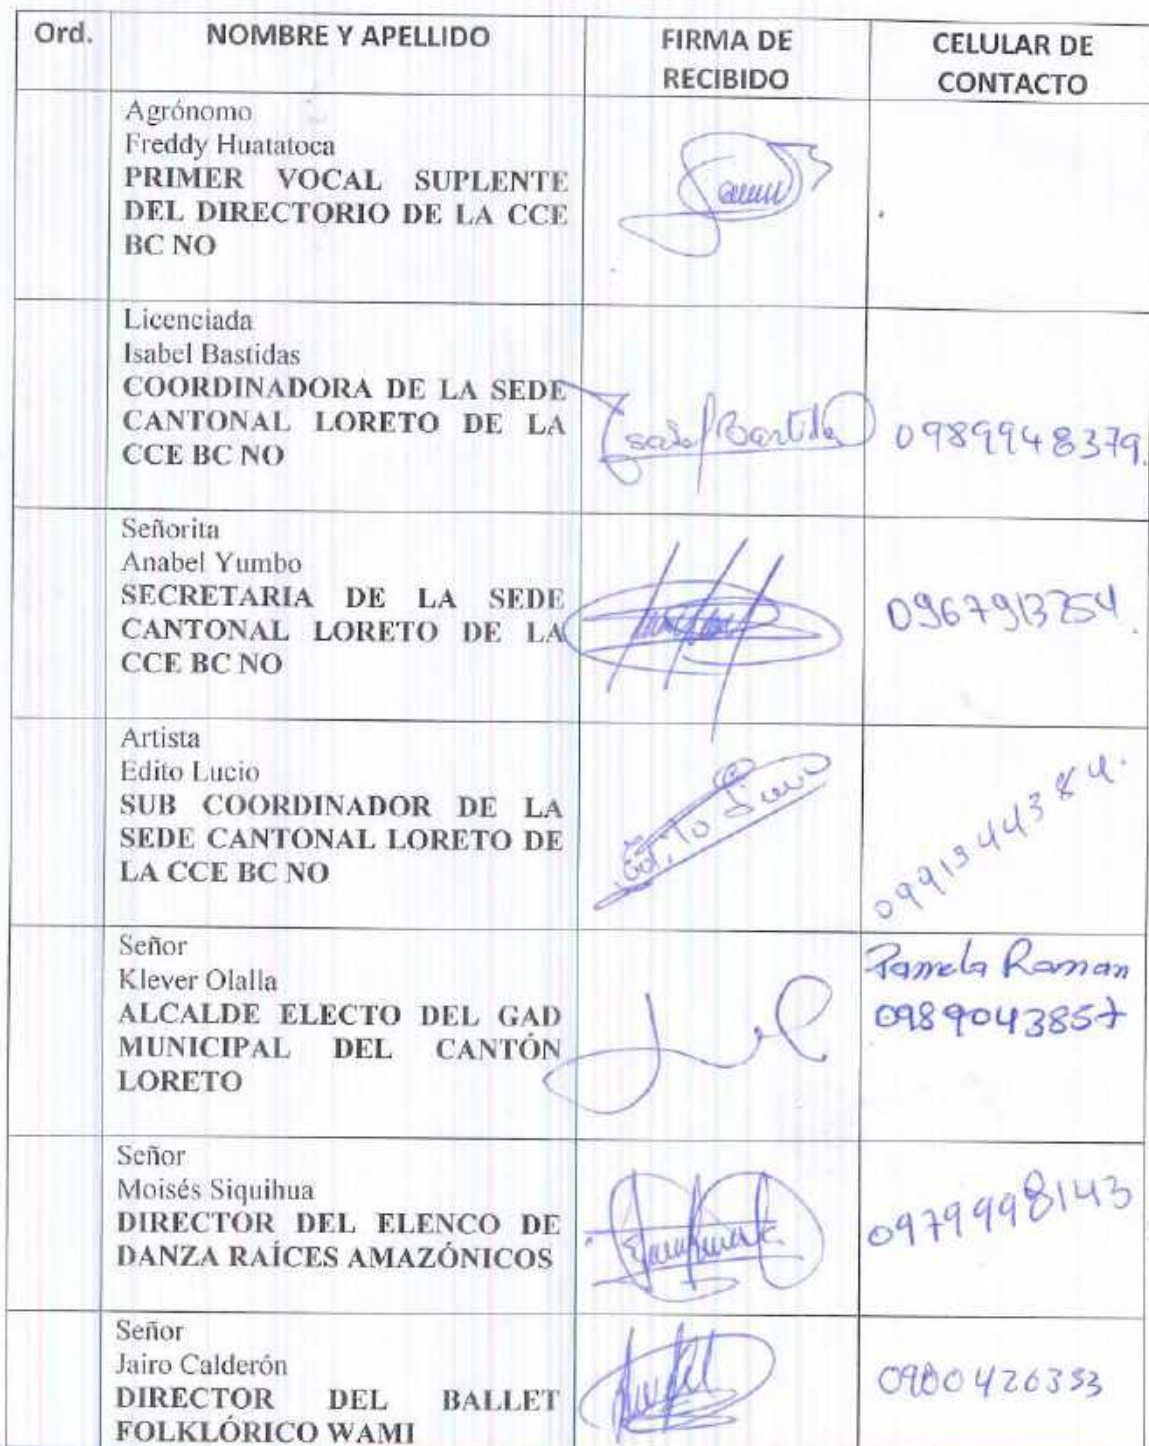 Ord.
NOMBRE Y APELLIDO
FIRMA DE
RECIBIDO
CELULAR DE
CONTACTO
Agrónomo
Freddy Huatatoca
PRIMER VOCAL SUPLENTE
DEL DIRECTORIO DE LA CCE
BC NO
Licenciada
Isabel Bastidas
COORDINADORA DE LA SEDE
CANTONAL LORETO DE LA
CCE BC NO
Isabel Bastidas
0989948379.
Señorita
Anabel Yumbo
SECRETARIA DE LA SEDE
CANTONAL LORETO DE LA
CCE BC NO
Artista
Edito Lucio
SUB COORDINADOR DE LA
SEDE CANTONAL LORETO DE
LA CCE BC NO
0991344384.
Señor
Klever Olalla
ALCALDE ELECTO DEL GAD
MUNICIPAL DEL CANTÓN
LORETO
Pamela Roman
0989043857
Señor
Moisés Siquihua
DIRECTOR DEL ELENCO DE
DANZA RAÍCES AMAZÓNICOS
0979998143
Señor
Jairo Calderón
DIRECTOR DEL BALLET
FOLKLÓRICO WAMI